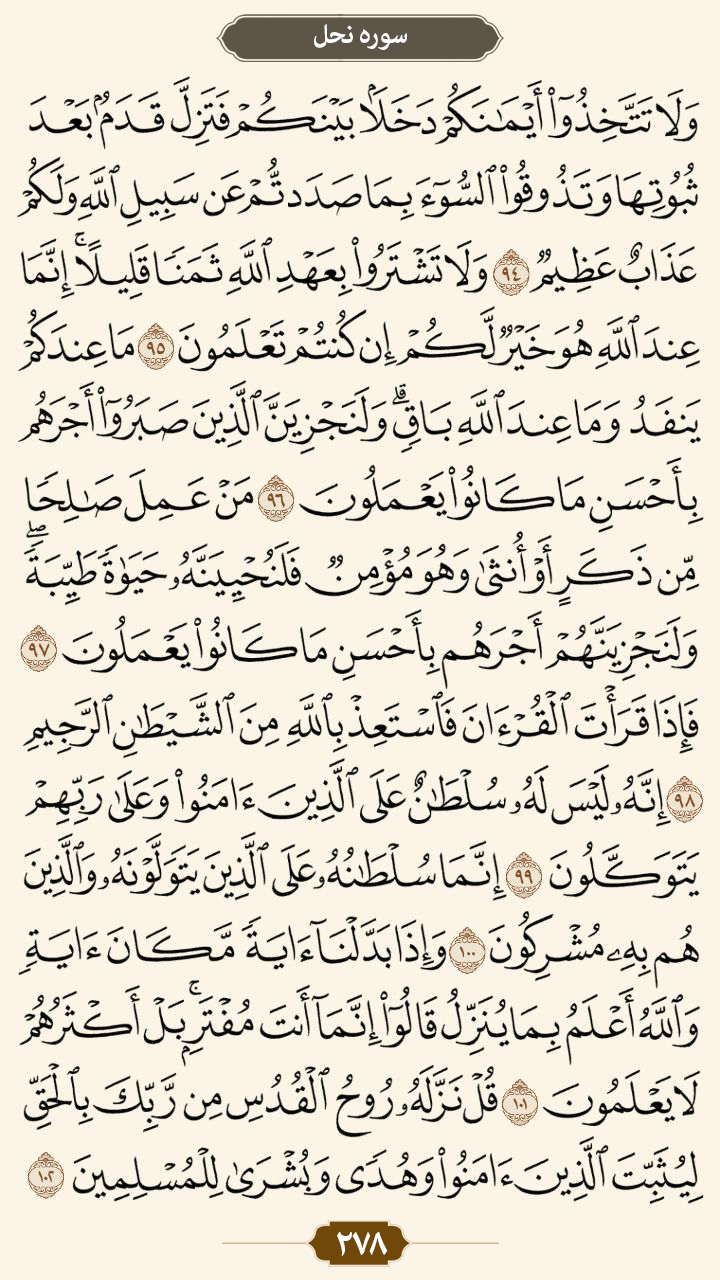 سوره نحل
وَلَا تَتَّخِذُوٓا۟ أَيْمَـٰنَكُمْ دَخَلًۢا بَيْنَكُمْ فَتَزِلَّ قَدَمٌۢ بَعْدَ
ثُبُوتِهَا وَتَذُوقُوا۟ ٱلسُّوٓءَ بِمَا صَدَدتُّمْ عَن سَبِيلِ ٱللَّهِ وَلَكُمْ
عَذَابٌ عَظِيمٌ ٩٤ وَلَا تَشْتَرُوا۟ بِعَهْدِ ٱللَّهِ ثَمَنًا قَلِيلًا ۚ إِنَّمَا
عِندَ ٱللَّهِ هُوَ خَيْرٌ لَّكُمْ إِن كُنتُمْ تَعْلَمُونَ ٩٥ مَا عِندَكُمْ
يَنفَدُ وَمَا عِندَ ٱللَّهِ بَاقٍ ۗ وَلَنَجْزِيَنَّ ٱلَّذِينَ صَبَرُوٓا۟ أَجْرَهُم
بِأَحْسَنِ مَا كَانُوا۟ يَعْمَلُونَ ٩٦ مَنْ عَمِلَ صَـٰلِحًا
مِّن ذَكَرٍ أَوْ أُنثَىٰ وَهُوَ مُؤْمِنٌ فَلَنُحْيِيَنَّهُۥ حَيَوٰةً طَيِّبَةً ۖ
وَلَنَجْزِيَنَّهُمْ أَجْرَهُم بِأَحْسَنِ مَا كَانُوا۟ يَعْمَلُونَ ٩٧
فَإِذَا قَرَأْتَ ٱلْقُرْءَانَ فَٱسْتَعِذْ بِٱللَّهِ مِنَ ٱلشَّيْطَـٰنِ ٱلرَّجِيمِ
٩٨ إِنَّهُۥ لَيْسَ لَهُۥ سُلْطَـٰنٌ عَلَى ٱلَّذِينَ ءَامَنُوا۟ وَعَلَىٰ رَبِّهِمْ
يَتَوَكَّلُونَ ٩٩ إِنَّمَا سُلْطَـٰنُهُۥ عَلَى ٱلَّذِينَ يَتَوَلَّوْنَهُۥ وَٱلَّذِينَ
هُم بِهِۦ مُشْرِكُونَ ١٠٠ وَإِذَا بَدَّلْنَآ ءَايَةً مَّكَانَ ءَايَةٍ
وَٱللَّهُ أَعْلَمُ بِمَا يُنَزِّلُ قَالُوٓا۟ إِنَّمَآ أَنتَ مُفْتَرٍۭ ۚ بَلْ أَكْثَرُهُمْ
لَا يَعْلَمُونَ ١٠١ قُلْ نَزَّلَهُۥ رُوحُ ٱلْقُدُسِ مِن رَّبِّكَ بِٱلْحَقِّ
لِيُثَبِّتَ ٱلَّذِينَ ءَامَنُوا۟ وَهُدًى وَبُشْرَىٰ لِلْمُسْلِمِينَ ١٠٢
٢٧٨